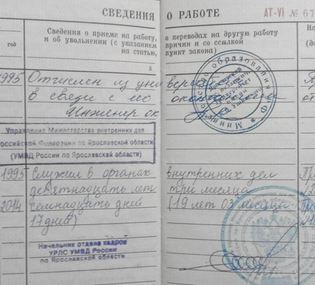 СВЕДЕНИЯ О РАБОТЕ
АТ-VI № 67
год
Сведения о приеме на работу, о переводах на другую работу
и об увольнении (с указанием причин и со ссылкой
на статью, пункт закона)
1995 Отчислен из университета
в связи с его окончанием
Инженер
Управление Министерства внутренних дел
Российской Федерации по Ярославской области
(УМВД России по Ярославской области)
1995 Служил в органах внутренних дел
девятнадцать лет три месяца
2014 семнадцать дней (19 лет 03 месяца
17 дней)
Начальник отдела кадров
УРЛС УМВД России
по Ярославской области